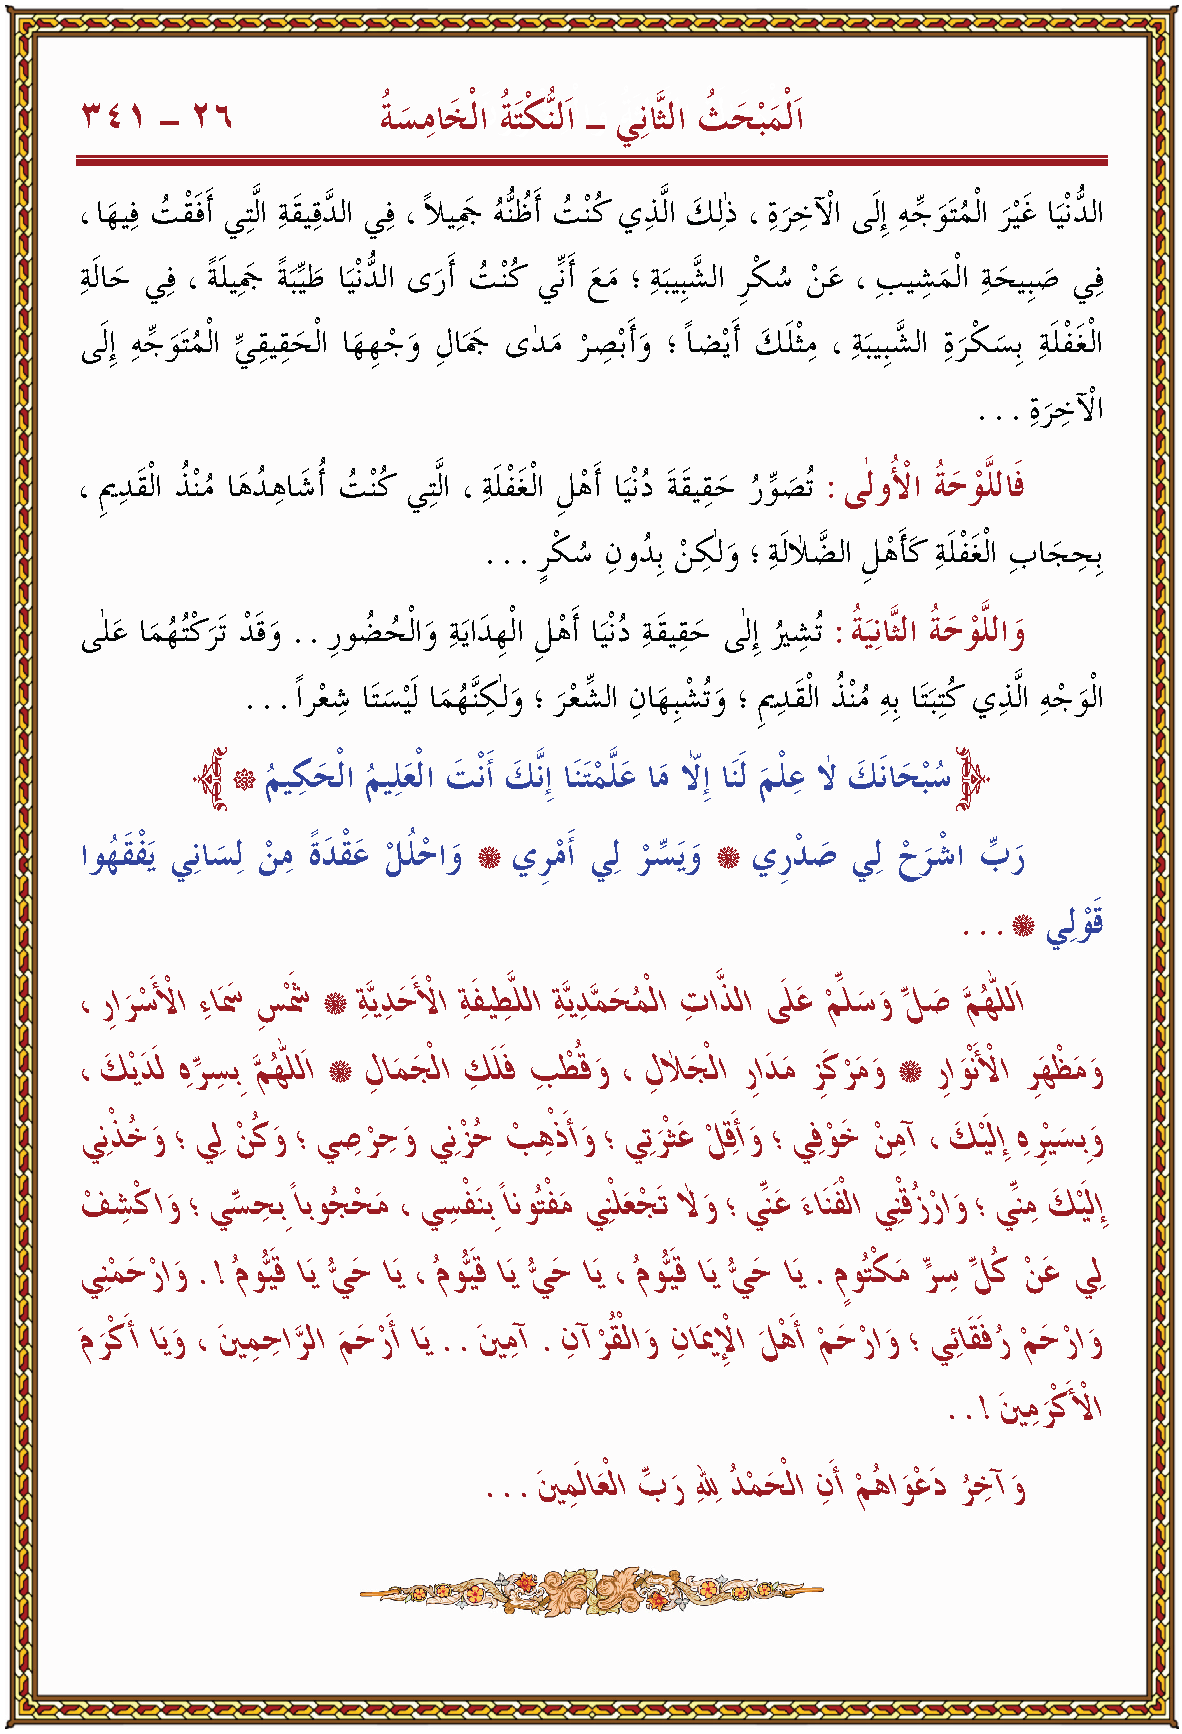 اَلْمَبْحَثُ الثَّانِي ــ اَلنُّكْتَةُ الْخَامِسَةُ ٢٦ ــ ٣٤١
الدُّنْيَا غَيْرَ الْمُتَوَجِّهِ إِلَى الْآخِرَةِ ، ذٰلِكَ الَّذِي كُنْتُ أَظُنُّهُ جَمِيلاً ، فِي الدَّقِيقَةِ الَّتِي أَفَقْتُ فِيهَا ،
فِي صَبِيحَةِ الْمَشِيبِ ، عَنْ سُكْرِ الشَّبِيبَةِ ؛ مَعَ أَنِّي كُنْتُ أَرَى الدُّنْيَا طَيِّبَةً جَمِيلَةً ، فِي حَالَةِ
الْغَفْلَةِ بِسَكْرَةِ الشَّبِيبَةِ ، مِثْلَكَ أَيْضاً ؛ وَأَبْصِرْ مَدٰى جَمَالِ وَجْهِهَا الْحَقِيقِيِّ الْمُتَوَجِّهِ إِلَى
الْآخِرَةِ . . .
فَاللَّوْحَةُ الْأُولٰى : تُصَوِّرُ حَقِيقَةَ دُنْيَا أَهْلِ الْغَفْلَةِ ، الَّتِي كُنْتُ أُشَاهِدُهَا مُنْذُ الْقَدِيمِ ،
بِحِجَابِ الْغَفْلَةِ كَأَهْلِ الضَّلَالَةِ ؛ وَلٰكِنْ بِدُونِ سُكْرٍ . . .
وَاللَّوْحَةُ الثَّانِيَةُ : تُشِيرُ إِلٰى حَقِيقَةِ دُنْيَا أَهْلِ الْهِدَايَةِ وَالْحُضُورِ . . وَقَدْ تَرَكْتُهُمَا عَلٰى
الْوَجْهِ الَّذِي كُتِبَتَا بِهِ مُنْذُ الْقَدِيمِ ؛ وَتُشْبِهَانِ الشِّعْرَ ؛ وَلٰكِنَّهُمَا لَيْسَتَا شِعْراً . . .
سُبْحَانَكَ لَا عِلْمَ لَنَا إِلَّا مَا عَلَّمْتَنَا إِنَّكَ أَنْتَ الْعَلِيمُ الْحَكِيمُ
رَبِّ اشْرَحْ لِي صَدْرِي وَيَسِّرْ لِي أَمْرِي وَاحْلُلْ عُقْدَةً مِنْ لِسَانِي يَفْقَهُوا
قَوْلِي . . .
اَللّٰهُمَّ صَلِّ وَسَلِّمْ عَلَى الذَّاتِ الْمُحَمَّدِيَّةِ اللَّطِيفَةِ الْأَحَدِيَّةِ شَمْسِ سَمَاءِ الْأَسْرَارِ ،
وَمَظْهَرِ الْأَنْوَارِ وَمَرْكَزِ مَدَارِ الْجَلَالِ ، وَقُطْبِ فَلَكِ الْجَمَالِ اَللّٰهُمَّ بِسِرِّهِ لَدَيْكَ ،
وَبِسَيْرِهِ إِلَيْكَ ، آمِنْ خَوْفِي ؛ وَأَقِلْ عَثْرَتِي ؛ وَأَذْهِبْ حُزْنِي وَحِرْصِي ؛ وَكُنْ لِي ؛ وَخُذْنِي
إِلَيْكَ مِنِّي ؛ وَارْزُقْنِي الْفَنَاءَ عَنِّي ؛ وَلَا تَجْعَلْنِي مَفْتُوناً بِنَفْسِي ، مَحْجُوباً بِحِسِّي ؛ وَاكْشِفْ
لِي عَنْ كُلِّ سِرٍّ مَكْتُومٍ . يَا حَيُّ يَا قَيُّومُ ، يَا حَيُّ يَا قَيُّومُ ، يَا حَيُّ يَا قَيُّومُ ! . وَارْحَمْنِي
وَارْحَمْ رُفَقَائِي ؛ وَارْحَمْ أَهْلَ الْإِيمَانِ وَالْقُرْآنِ . آمِينَ . . يَا أَرْحَمَ الرَّاحِمِينَ ، وَيَا أَكْرَمَ
الْأَكْرَمِينَ ! . .
وَآخِرُ دَعْوَاهُمْ أَنِ الْحَمْدُ لِلّٰهِ رَبِّ الْعَالَمِينَ . . .